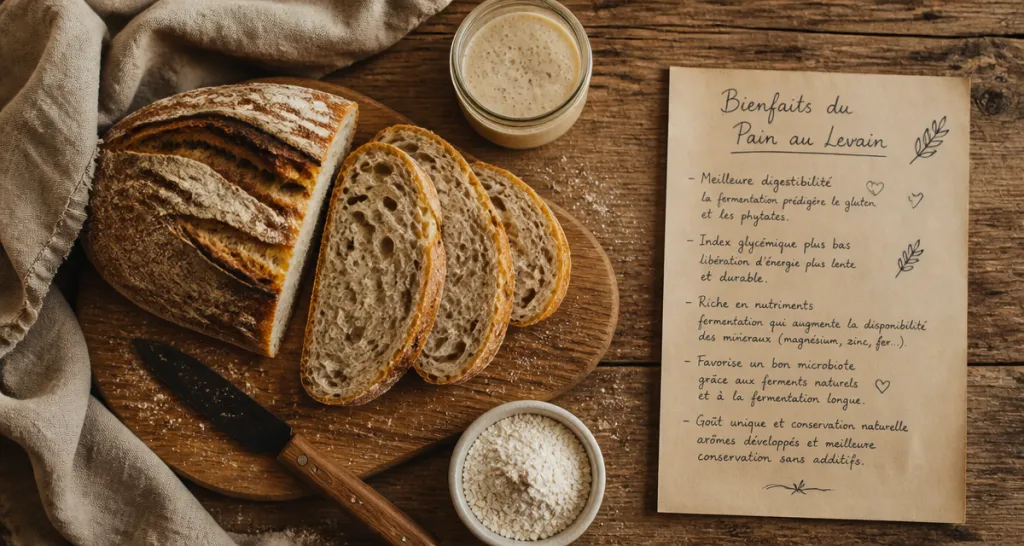 Bienfaits du
Pain au Levain
- Meilleure digestibilité
la fermentation prédigère le gluten
et les phytates.
- Index glycémique plus bas
libération d'énergie plus lente
et durable.
- Riche en nutriments
fermentation qui augmente la disponibilité
des minéraux (magnésium, zinc, fer...).
- Favorise un bon microbiote
grâce aux ferments naturels
et à la fermentation longue.
- Goût unique et conservation naturelle
arômes développés et meilleure
conservation sans additifs.